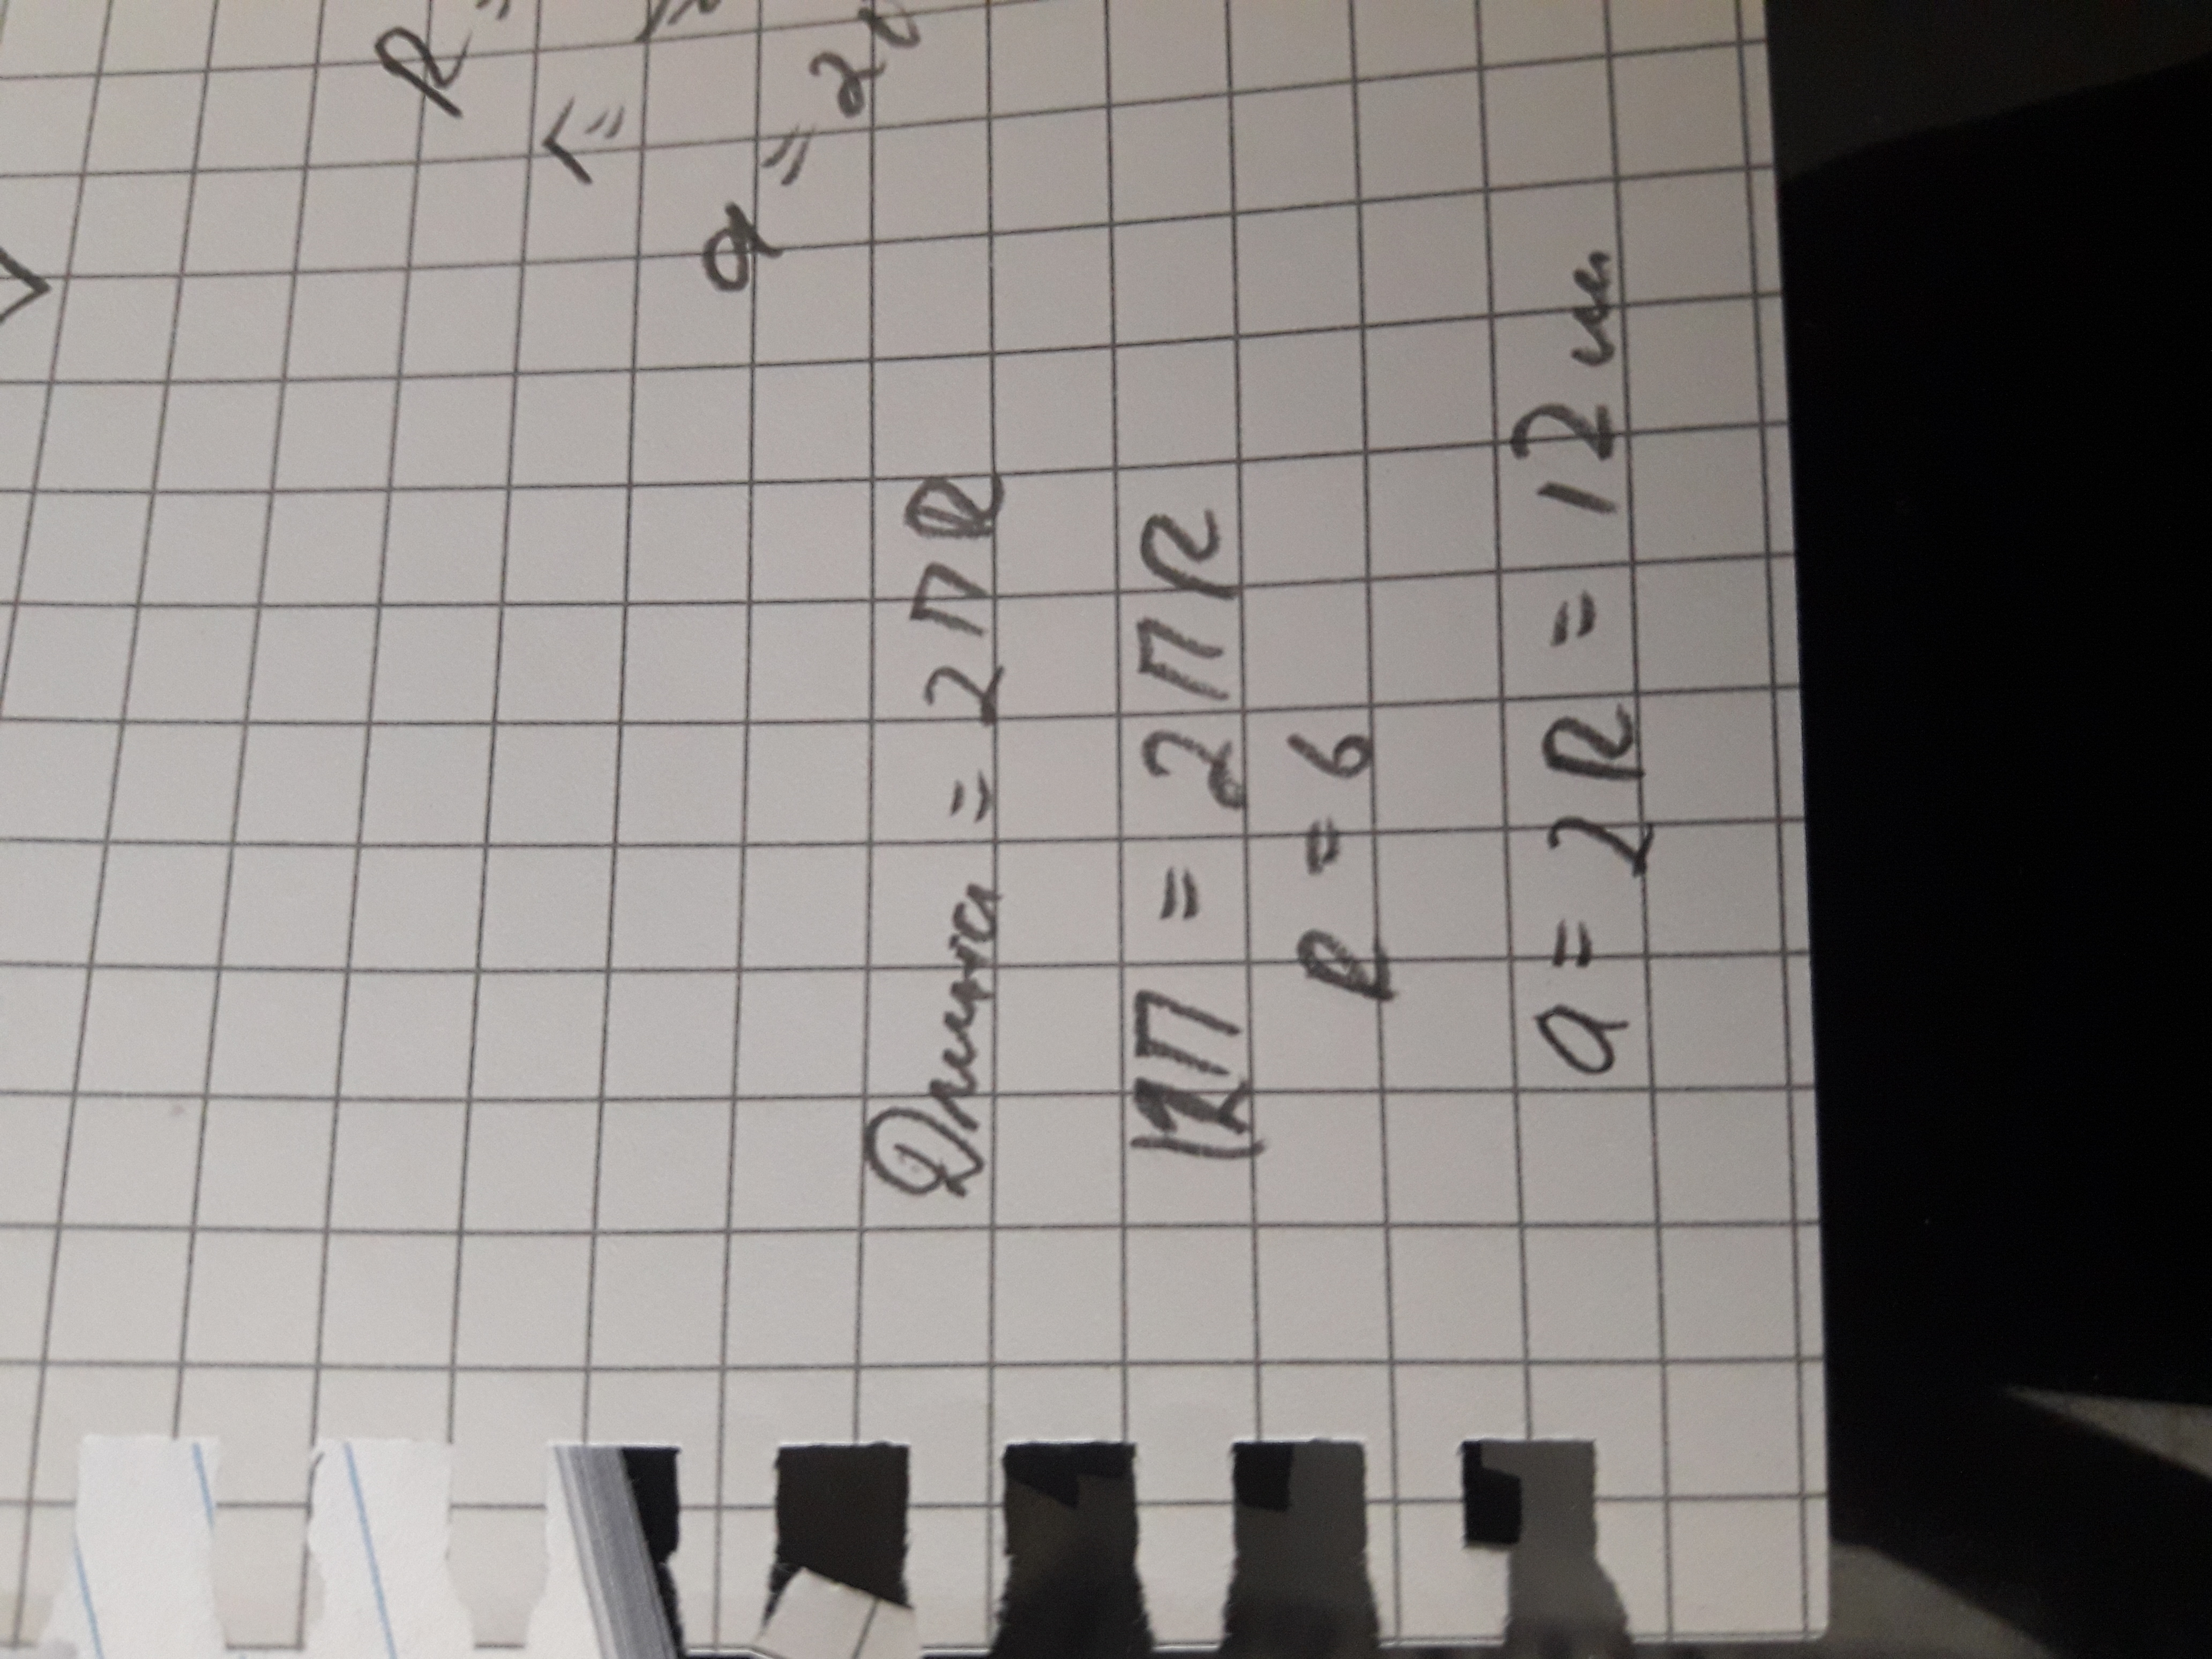 R =
r =
a = 2r
Длина = 2ПR
12П = 2ПR
R = 6
a = 2R = 12 см